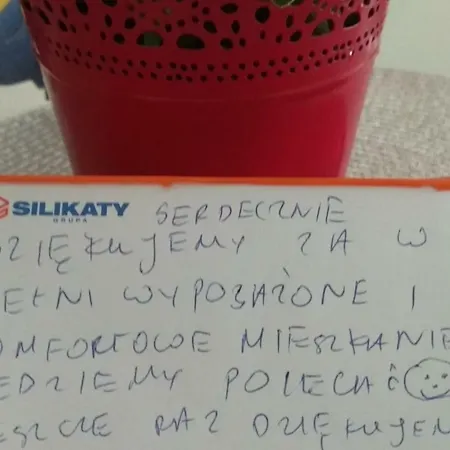 SILIKATY
GRUPA
SERDECZNIE
ZIĘKUJEMY ZA W
EŁNI WYPOSAŻONE I
OMFORTOWE MIESZKANIE
ĘDZIEMY POLECAĆ
ESZCZE RAZ DZIĘKUJEM